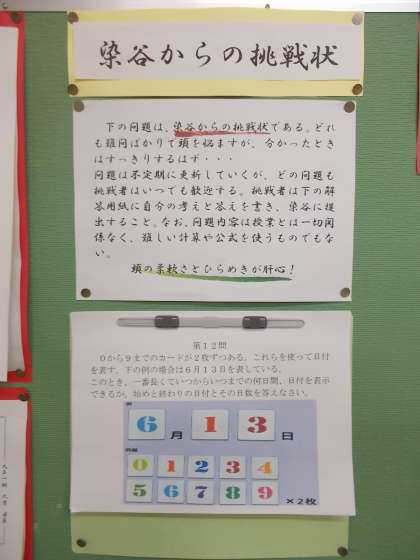 染谷からの挑戦状
下の問題は、染谷からの挑戦状である。どれ
も難問ばかりで頭を悩ますが、分かったとき
はすっきりするはず・・・
問題は不定期に更新していくが、どの問題も
挑戦者はいつでも歓迎する。挑戦者は下の解
答用紙に自分の考えと答えを書き、染谷に提
出すること。なお、問題内容は授業とは一切関
係なく、難しい計算や公式を使うものでもな
い。
頭の柔軟さとひらめきが肝心!
第12問
0から9までのカードが2枚ずつある。これらを使って日付
を表す。下の例の場合は6月13日を表している。
このとき、一番長くていつからいつまでの何日間、日付を表示
できるか。始めと終わりの日付とその日数を答えなさい。
例
6月13日
0 1 2 3 4
5 6 7 8 9 ×2枚